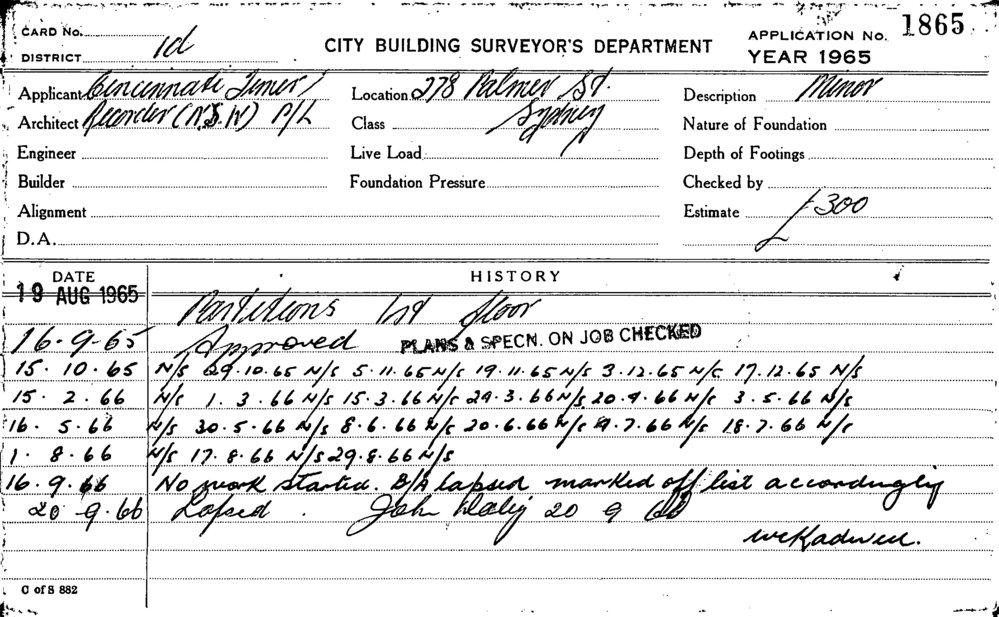 CARD No.
DISTRICT 1d
CITY BUILDING SURVEYOR'S DEPARTMENT
APPLICATION No. 1865
YEAR 1965
Applicant Cincinnati Timer /
Architect Recorder (N.S.W) P/L
Engineer
Builder
Alignment
D.A.
Location 278 Palmer St.
Class Sydney
Live Load
Foundation Pressure
Description Minor
Nature of Foundation
Depth of Footings
Checked by
Estimate £300
DATE HISTORY
19 AUG 1965
Partitions 1st floor
16-9-65 Approved PLANS & SPECN. ON JOB CHECKED
15.10.65 N/S 29.10.65 N/S 5.11.65 N/S 19.11.65 N/S 3.12.65 N/S 17.12.65 N/S
15.2.66 N/S 1.3.66 N/S 15.3.66 N/S 29.3.66 N/S 20.4.66 N/S 3.5.66 N/S
16.5.66 N/S 30.5.66 N/S 8.6.66 N/S 20.6.66 N/S 4.7.66 N/S 18.7.66 N/S
1.8.66 N/S 17.8.66 N/S 29.8.66 N/S
16.9.66 No work started. B/A lapsed marked off list accordingly
20-9.66 Lapsed. John Daly 20 9 66
C of S 882